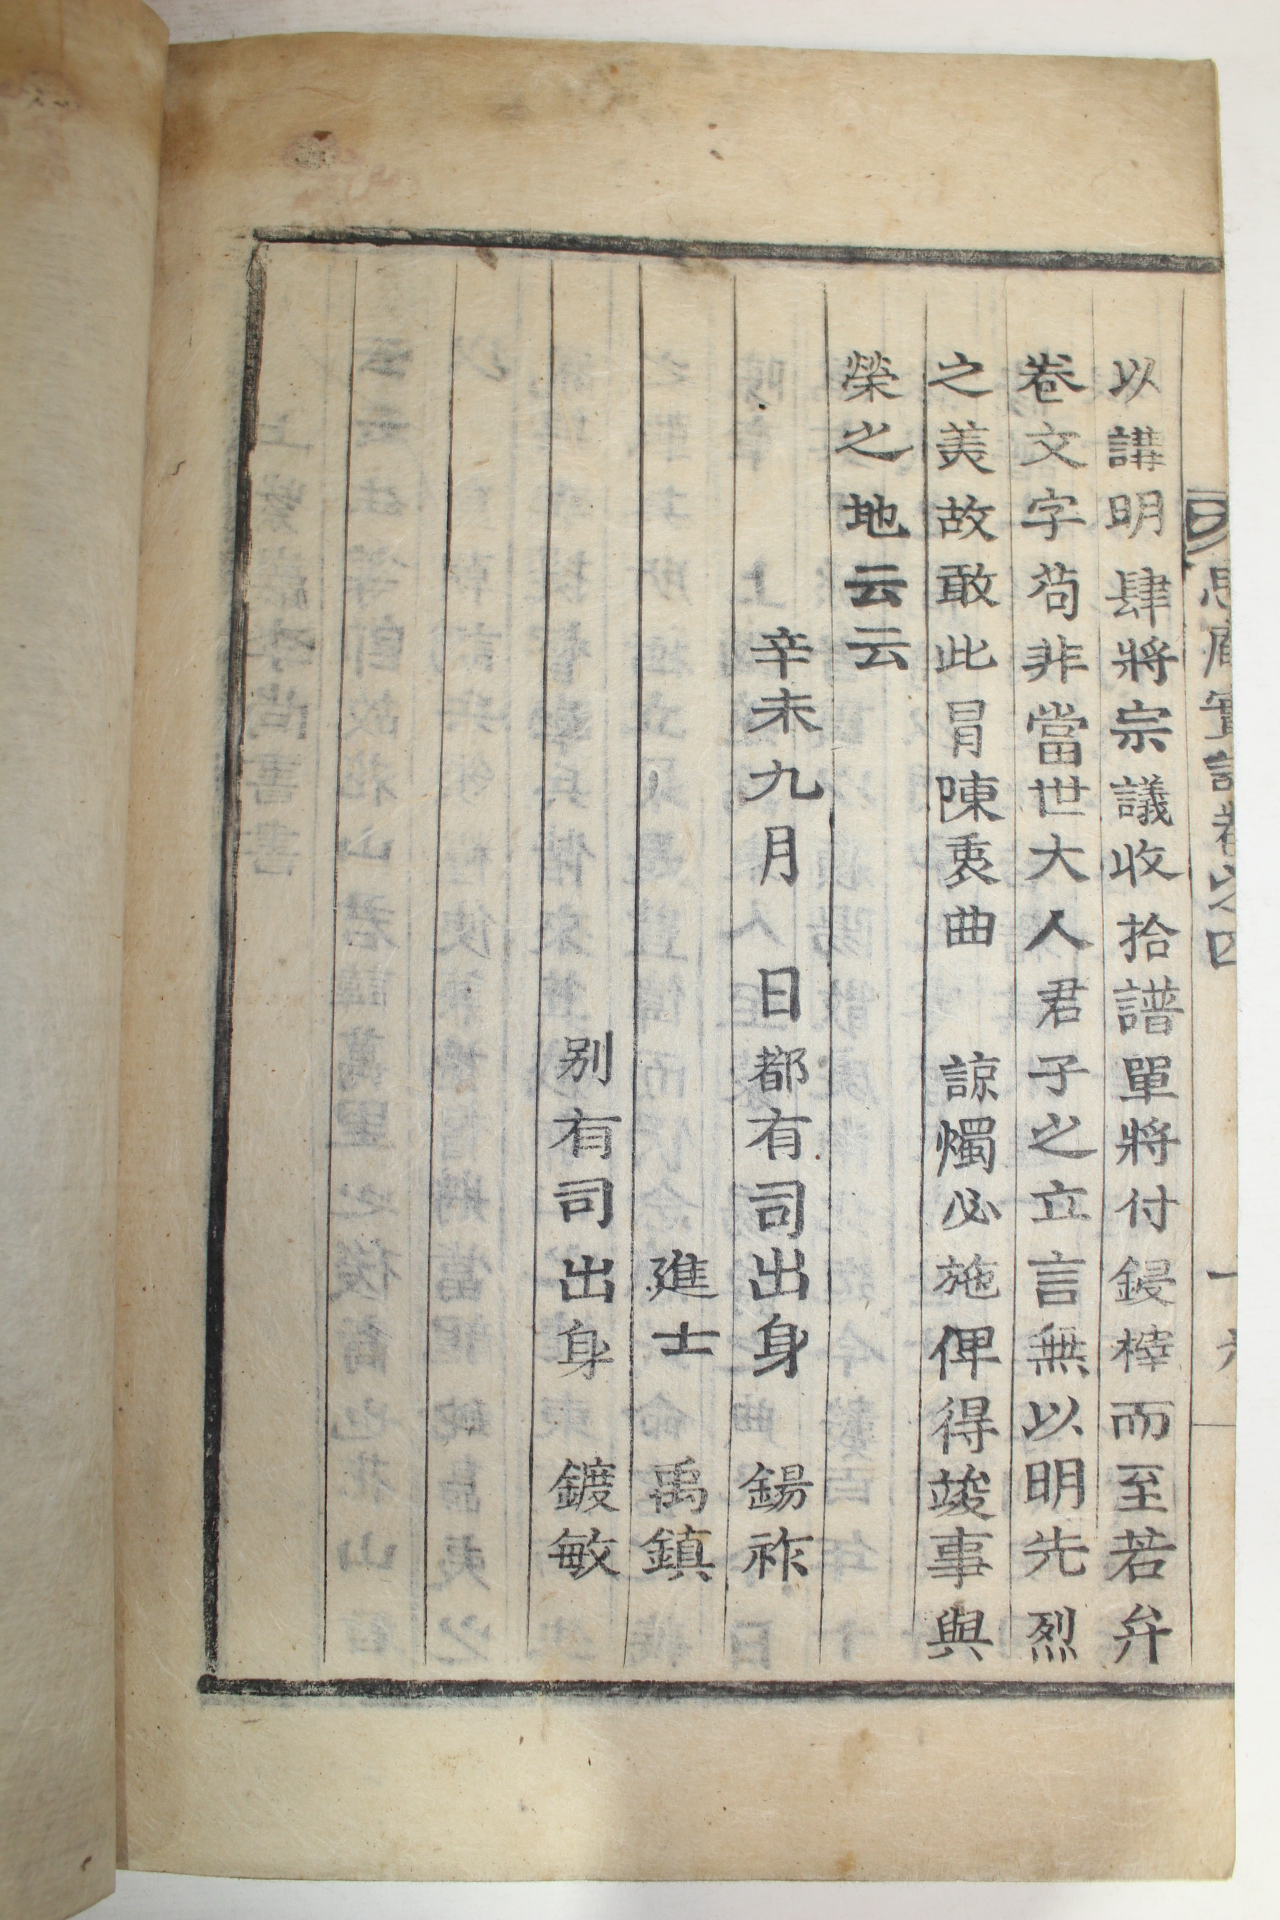 思庵實記卷之四
十六
以講明肆將宗議收拾譜單將付鋟榟而至若弁
卷文字苟非當世大人君子之立言無以明先烈
之美故敢此冐陳衷曲 諒燭必施俾得竣事與
榮之地云云
辛未九月 日都有司出身 鍚祚
進士 禹鎮
别有司出身 鍍敏